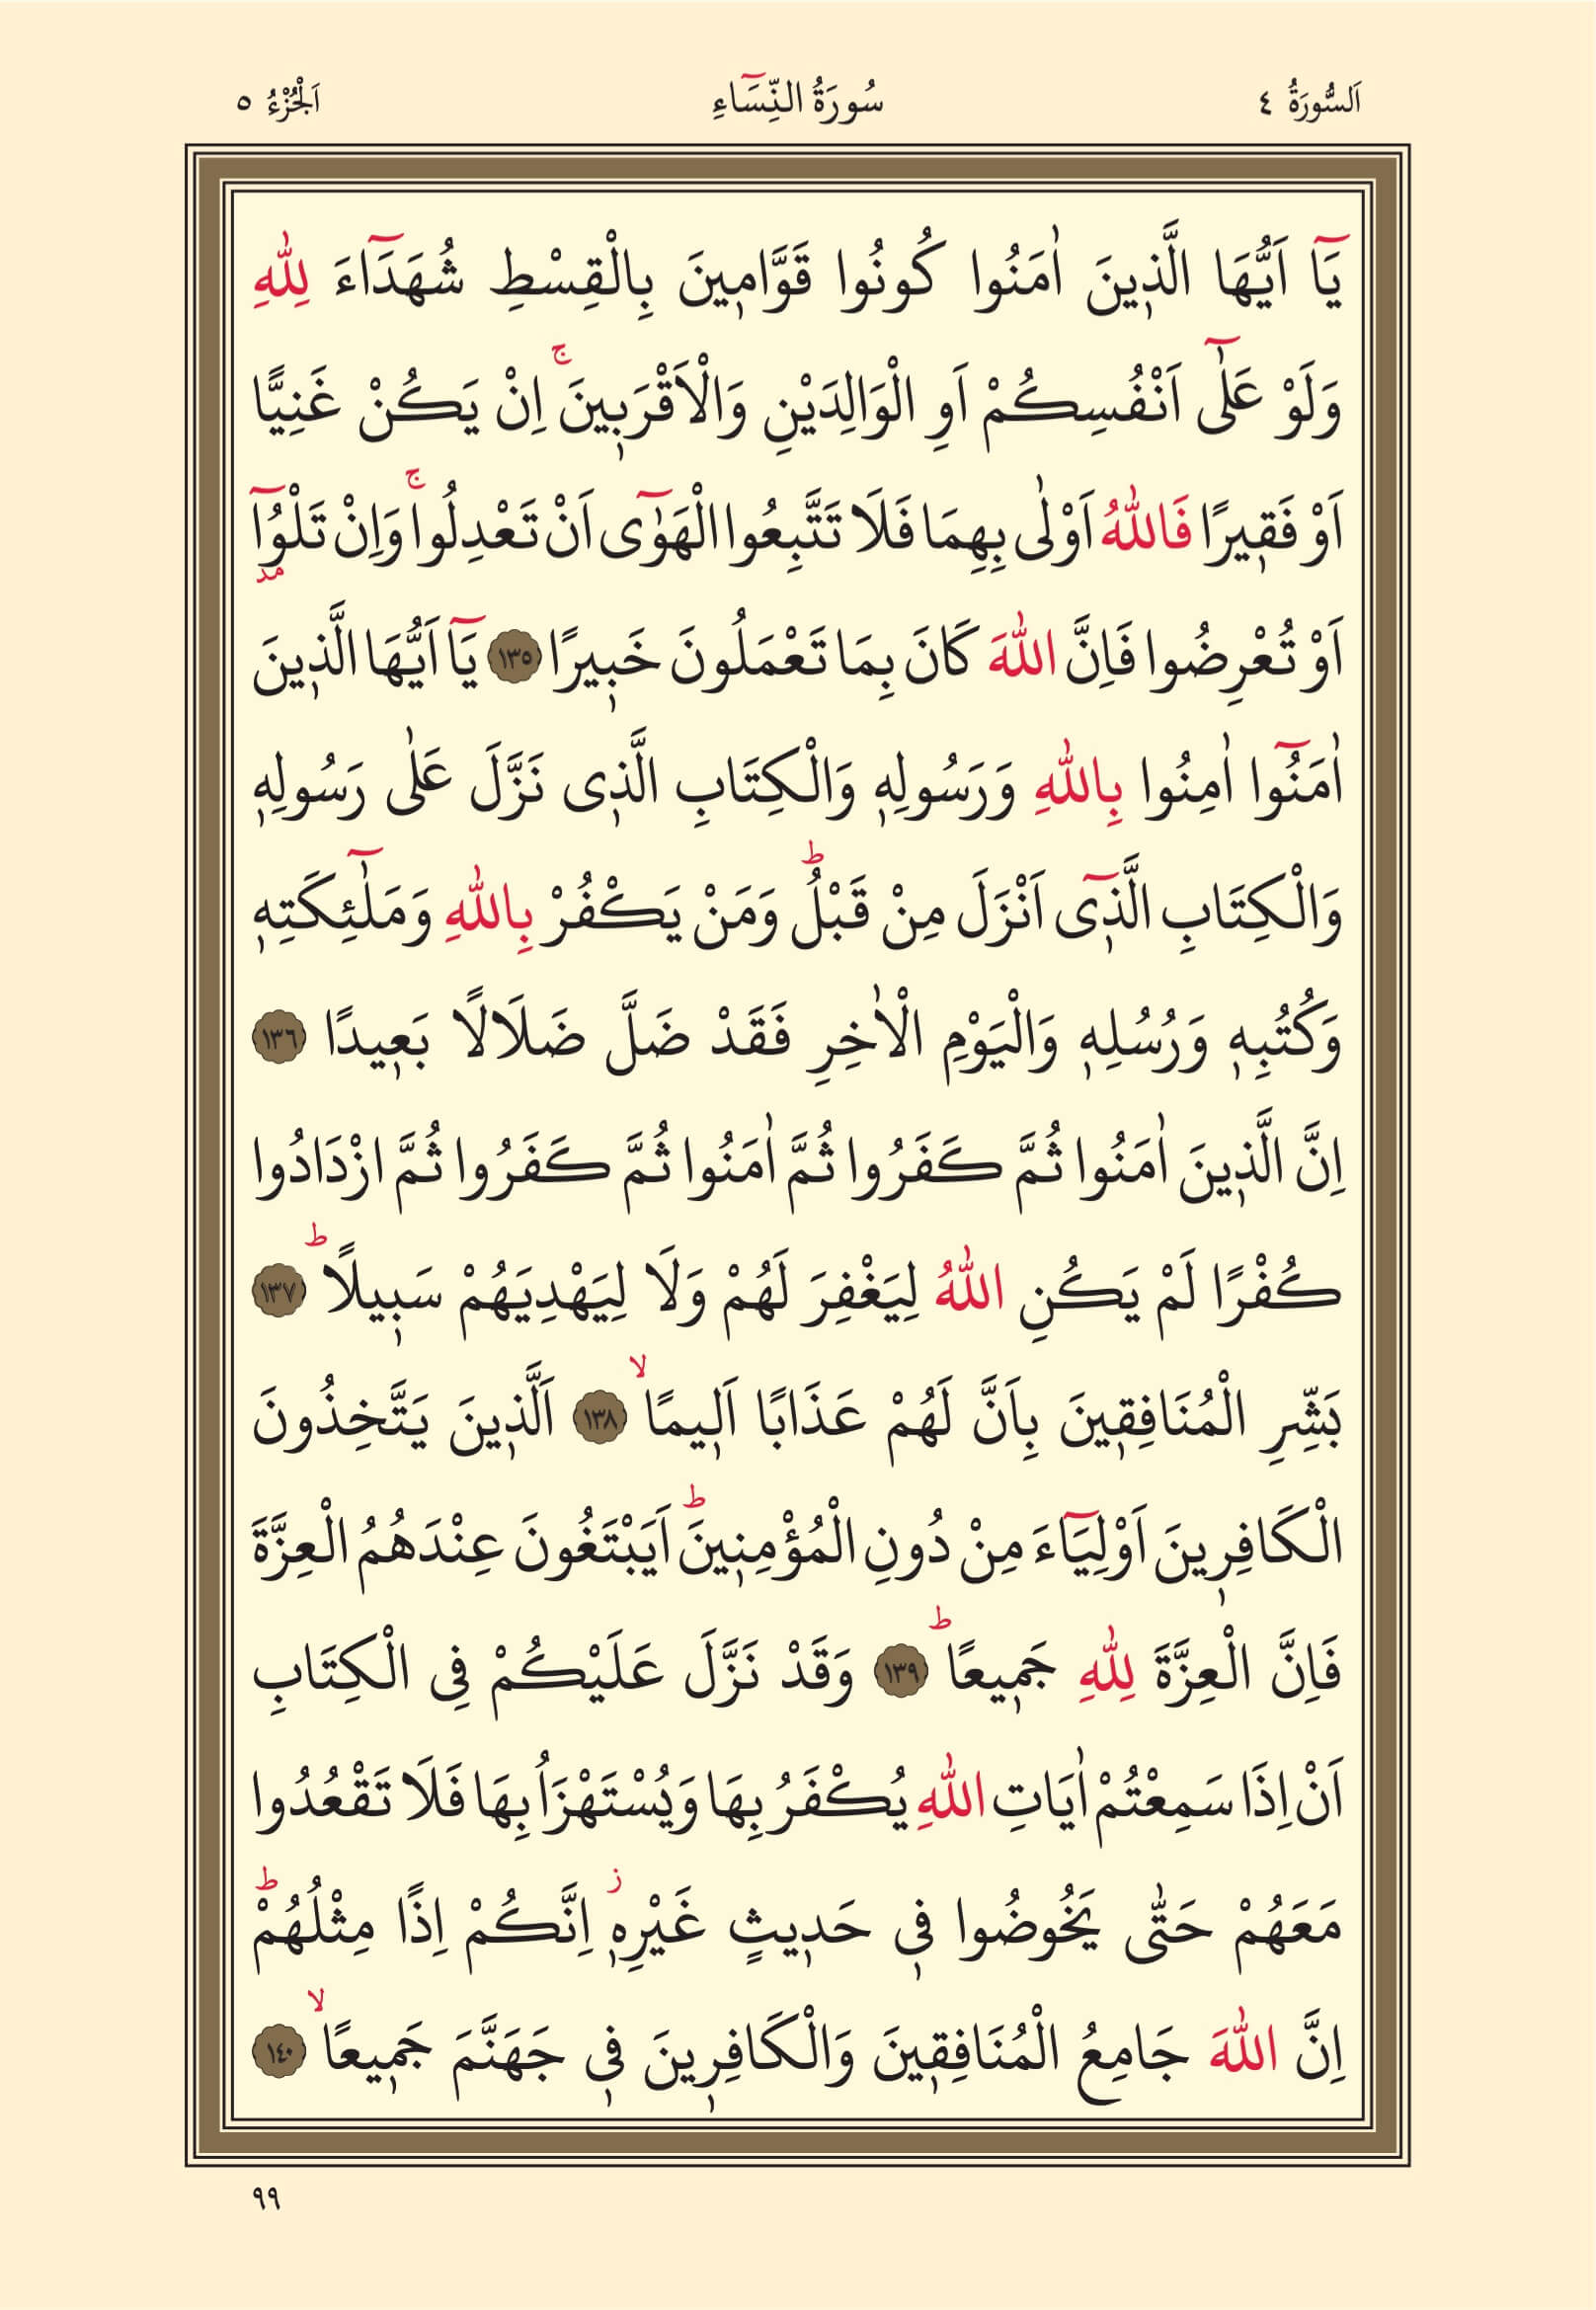 اَلسُّورَةُ ٤ سُورَةُ النِّسَٓاءِ اَلْجُزْءُ ٥
يَٓا اَيُّهَا الَّذ۪ينَ اٰمَنُوا كُونُوا قَوَّام۪ينَ بِالْقِسْطِ شُهَدَٓاءَ لِلّٰهِ
وَلَوْ عَلٰٓى اَنْفُسِكُمْ اَوِ الْوَالِدَيْنِ وَالْاَقْرَب۪ينَۚ اِنْ يَكُنْ غَنِيًّا
اَوْ فَق۪يرًا فَاللّٰهُ اَوْلٰى بِهِمَا فَلَا تَتَّبِعُوا الْهَوٰٓى اَنْ تَعْدِلُواۚ وَاِنْ تَلْوُٓا
مد
اَوْ تُعْرِضُوا فَاِنَّ اللّٰهَ كَانَ بِمَا تَعْمَلُونَ خَب۪يرًا ١٣٥ يَٓا اَيُّهَا الَّذ۪ينَ
اٰمَنُٓوا اٰمِنُوا بِاللّٰهِ وَرَسُولِه۪ وَالْكِتَابِ الَّذ۪ى نَزَّلَ عَلٰى رَسُولِه۪
وَالْكِتَابِ الَّذ۪ٓى اَنْزَلَ مِنْ قَبْلُۜ وَمَنْ يَكْفُرْ بِاللّٰهِ وَمَلٰٓئِكَتِه۪
وَكُتُبِه۪ وَرُسُلِه۪ وَالْيَوْمِ الْاٰخِرِ فَقَدْ ضَلَّ ضَلَالًا بَع۪يدًا ١٣٦
اِنَّ الَّذ۪ينَ اٰمَنُوا ثُمَّ كَفَرُوا ثُمَّ اٰمَنُوا ثُمَّ كَفَرُوا ثُمَّ ازْدَادُوا
كُفْرًا لَمْ يَكُنِ اللّٰهُ لِيَغْفِرَ لَهُمْ وَلَا لِيَهْدِيَهُمْ سَب۪يلًاۜ ١٣٧
بَشِّرِ الْمُنَافِق۪ينَ بِاَنَّ لَهُمْ عَذَابًا اَل۪يمًاۙ ١٣٨ اَلَّذ۪ينَ يَتَّخِذُونَ
الْكَافِر۪ينَ اَوْلِيَٓاءَ مِنْ دُونِ الْمُؤْمِن۪ينَۜ اَيَبْتَغُونَ عِنْدَهُمُ الْعِزَّةَ
فَاِنَّ الْعِزَّةَ لِلّٰهِ جَم۪يعًاۜ ١٣٩ وَقَدْ نَزَّلَ عَلَيْكُمْ فِى الْكِتَابِ
اَنْ اِذَا سَمِعْتُمْ اٰيَاتِ اللّٰهِ يُكْفَرُ بِهَا وَيُسْتَهْزَاُ بِهَا فَلَا تَقْعُدُوا
مَعَهُمْ حَتّٰى يَخُوضُوا ف۪ى حَد۪يثٍ غَيْرِه۪ۘ اِنَّكُمْ اِذًا مِثْلُهُمْۜ
اِنَّ اللّٰهَ جَامِعُ الْمُنَافِق۪ينَ وَالْكَافِر۪ينَ ف۪ى جَهَنَّمَ جَم۪يعًاۙ ١٤٠
٩٩